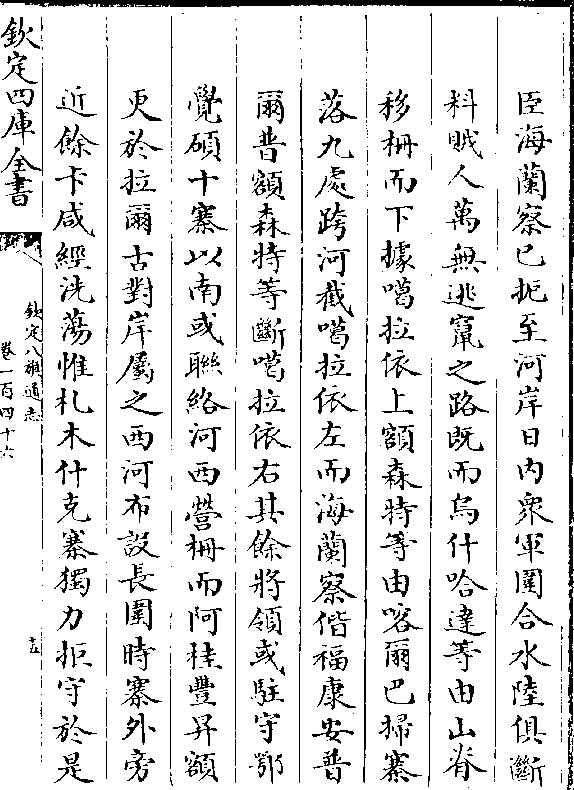 臣海蘭察已扼至河岸日内衆軍圍合水陸俱斷
料賊人萬無逃竄之路既而烏什哈達等由山脊
移柵而下據噶拉依上額森特等由喀爾巴掃寨
落九處跨河截噶拉依左而海蘭察偕福康安普
爾普額森特等斷噶拉依右其餘將領或駐守鄂
覺碩十寨以南或聯絡河西營柵而阿桂豐昇額
更於拉爾古對岸屬之西河布設長圍時寨外旁
近餘卡咸經洗蕩惟札木什克寨獨力拒守於是
欽定四庫全書
欽定八旗通志
卷一百四十六
十五